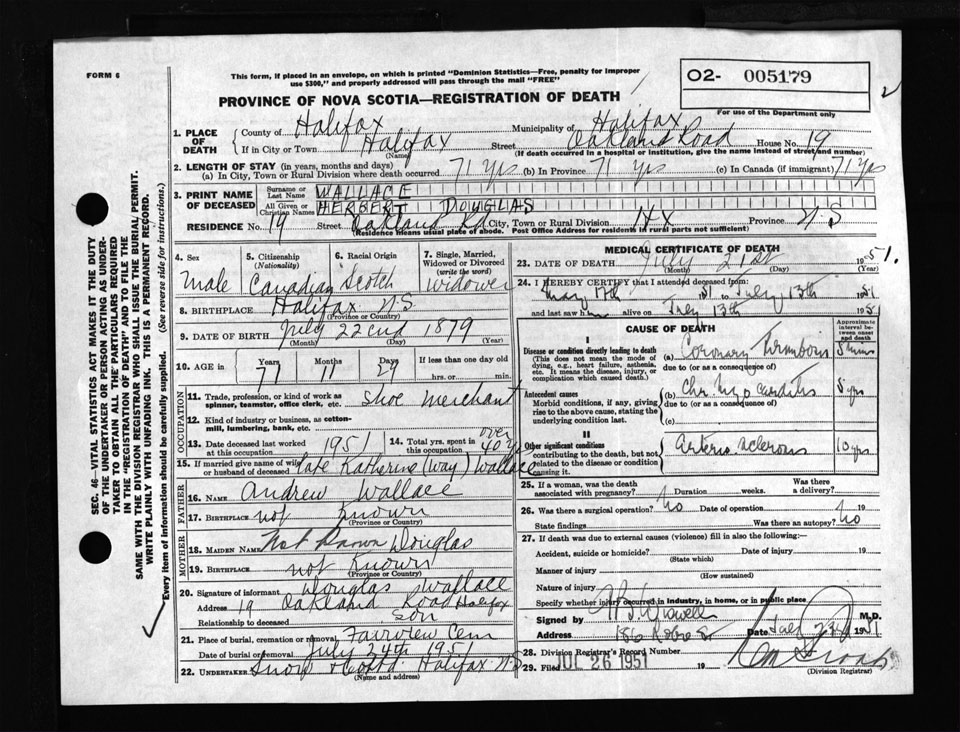 FORM 6
This form, if placed in an envelope, on which is printed "Dominion Statistics—Free, penalty for improper
use $300," and properly addressed will pass through the mail "FREE"
O2- 005179
For use of the Department only
PROVINCE OF NOVA SCOTIA—REGISTRATION OF DEATH
1. PLACE OF DEATH
County of Halifax Municipality of Halifax
If in City or Town Halifax (Name) Oakland Road House No. 19
(If death occurred in a hospital or institution, give the name instead of street and number)
2. LENGTH OF STAY (in years, months and days)
(a) In City, Town or Rural Division where death occurred 71 yrs (b) In Province 71 yrs (c) In Canada (if immigrant) 71 yrs
3. PRINT NAME OF DECEASED
Surname or Last Name WALLACE
All Given or Christian Names HERBERT DOUGLAS
RESIDENCE No. 19 Street Oakland Rd City, Town or Rural Division Hx Province N.S
(Residence means usual place of abode. Post Office Address for residents in rural parts not sufficient)
4. Sex Male
5. Citizenship (Nationality) Canadian
6. Racial Origin Scotch
7. Single, Married, Widowed or Divorced (write the word) widower
8. BIRTHPLACE Halifax N.S
(Province or Country)
9. DATE OF BIRTH July 22nd 1879
(Month) (Day) (Year)
10. AGE in Years 71 Months 11 Days 29 If less than one day
hrs. or min.
OCCUPATION
11. Trade, profession, or kind of work as
spinner, teamster, office clerk, etc. Shoe Merchant
12. Kind of industry or business, as cotton-
mill, lumbering, bank, etc.
13. Date deceased last worked
at this occupation 1951
14. Total yrs. spent in
this occupation over 40 y
15. If married give name of wife
or husband of deceased Late Katherine (Way) Wallace
FATHER
16. NAME Andrew Wallace
17. BIRTHPLACE not known
(Province or Country)
MOTHER
18. MAIDEN NAME Not known Douglas
19. BIRTHPLACE not known
(Province or Country)
20. Signature of informant Douglas Wallace
Address 19 Oakland Road Halifax
Relationship to deceased son
21. Place of burial, cremation or removal Fairview Cem
Date of burial or removal July 24th 1951
22. UNDERTAKER Snow & Co Ltd Halifax N.S
(Name and address)
MEDICAL CERTIFICATE OF DEATH
23. DATE OF DEATH July 21st 1951.
(Month) (Day) (Year)
24. I HEREBY CERTIFY that I attended deceased from:
May 17th 51 to July 13th 1951
and last saw h im alive on July 13th 1951
CAUSE OF DEATH
Approximate interval between onset and death
I
Disease or condition directly leading to death
(This does not mean the mode of dying, e.g., heart failure, asthenia, etc. It means the disease, injury, or complication which caused death.)
(a) Coronary Thrombosis
due to (or as a consequence of)
Antecedent causes
Morbid conditions, if any, giving rise to the above cause, stating the underlying condition last.
(b) Chr Myocarditis 8 yrs
due to (or as a consequence of)
(c)
II
Other significant conditions
contributing to the death, but not related to the disease or condition causing it.
Arterio sclerosis 10 yrs
25. If a woman, was the death
associated with pregnancy? Duration weeks. Was there a delivery?
26. Was there a surgical operation? No Date of operation 19
State findings Was there an autopsy? No
27. If death was due to external causes (violence) fill in also the following:
Accident, suicide or homicide? Date of injury 19
(State which)
Manner of injury
(How sustained)
Nature of injury
Specify whether injury occurred in industry, in home, or in public place
Signed by M.D.
Address 186 Robie St Date July 23rd 1951
28. Division Registrar's Record Number
29. Filed JUL 26 1951 19
(Division Registrar)
SEC. 46—VITAL STATISTICS ACT MAKES IT THE DUTY
OF THE UNDERTAKER OR PERSON ACTING AS UNDER-
TAKER TO OBTAIN ALL THE PARTICULARS REQUIRED
IN THE "REGISTRATION OF DEATH" AND TO FILE THE
SAME WITH THE DIVISION REGISTRAR WHO SHALL ISSUE THE BURIAL PERMIT.
WRITE PLAINLY WITH UNFADING INK. THIS IS A PERMANENT RECORD.
Every item of information should be carefully supplied. (See reverse side for instructions.)